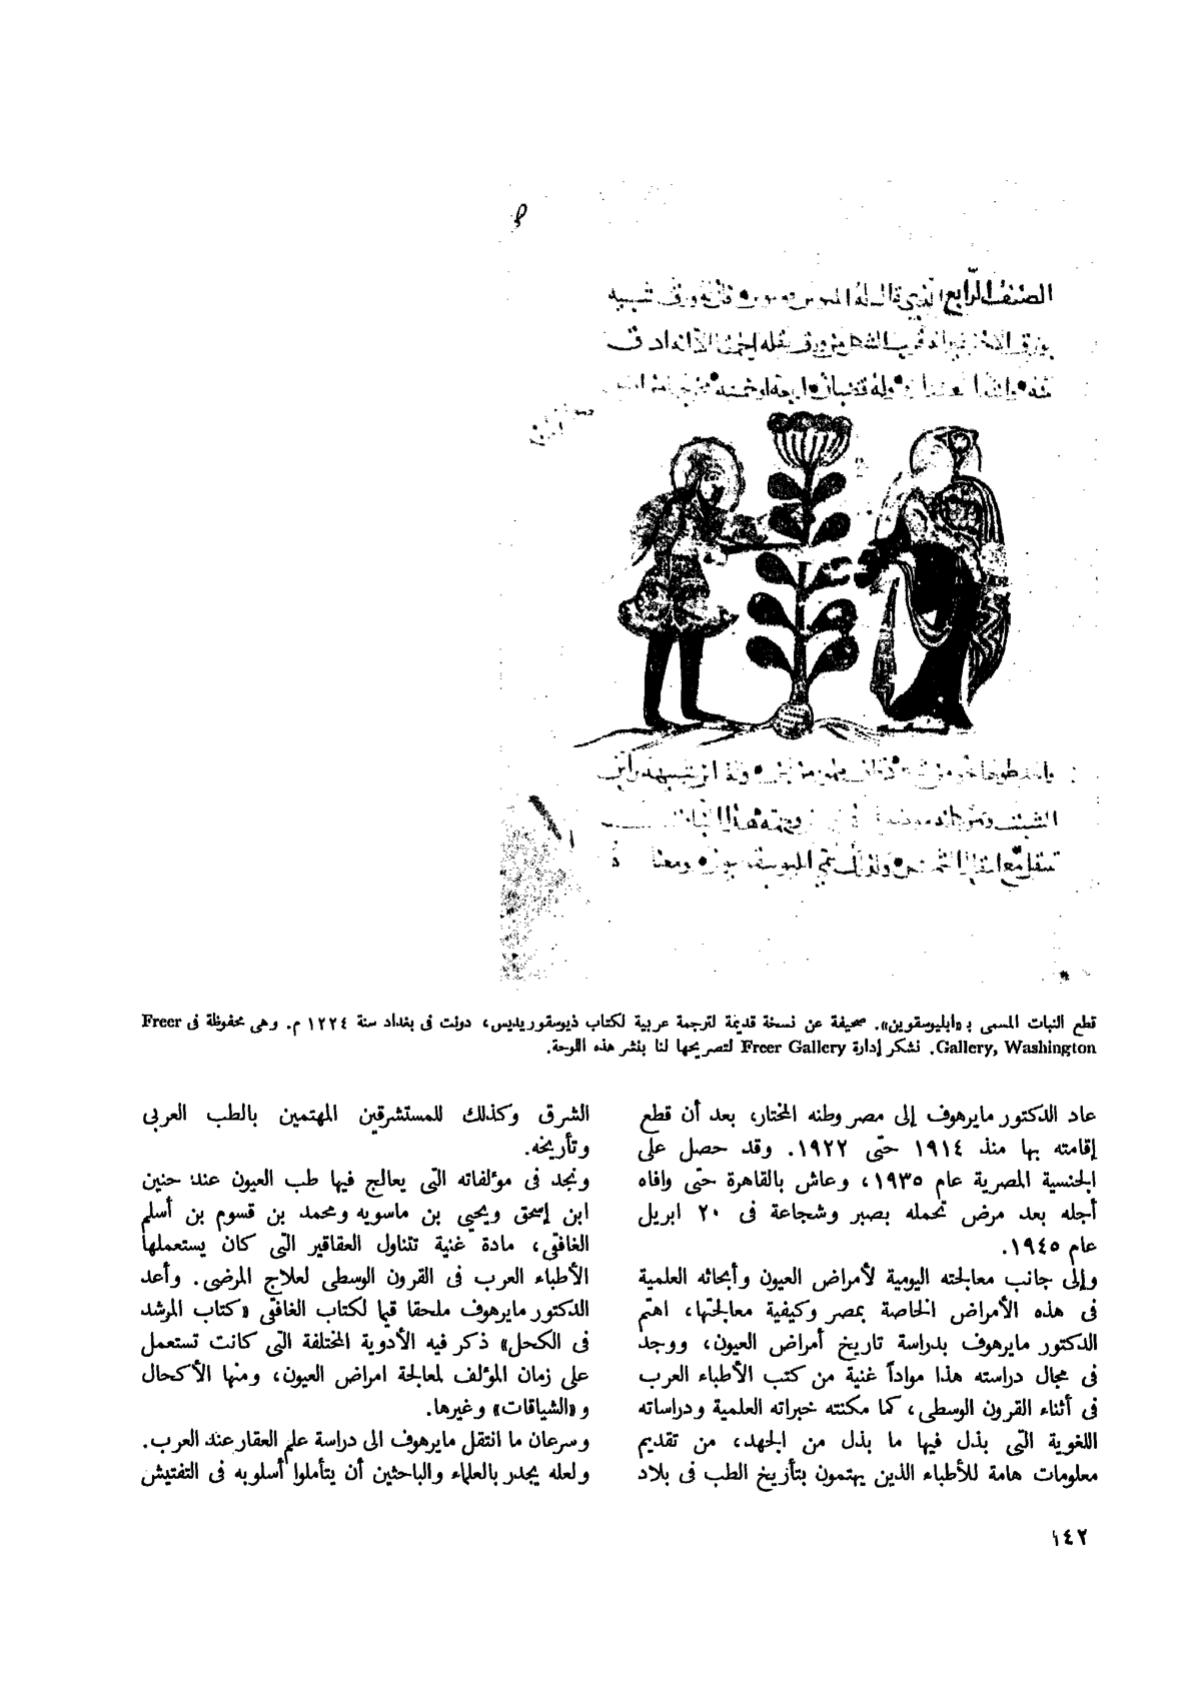 الصنف الرابع
قطع النبات المسمى بـ «ابليوسقوين». صحيفة عن نسخة قديمة لترجمة عربية لكتاب ذيوسقوريديس، دونت فى بغداد سنة ١٢٢٤ م. وهى محفوظة فى Freer
Gallery, Washington. نشكر إدارة Freer Gallery لتصريحها لنا بنشر هذه اللوحة.
عاد الدكتور مايرهوف إلى مصر وطنه المختار، بعد أن قطع
إقامته بها منذ ١٩١٤ حتّى ١٩٢٢. وقد حصل على
الجنسية المصرية عام ١٩٣٥، وعاش بالقاهرة حتّى وافاه
أجله بعد مرض تحمله بصبر وشجاعة فى ٢٠ ابريل
عام ١٩٤٥.
وإلى جانب معالجته اليومية لأمراض العيون وأبحاثه العلمية
فى هذه الأمراض الخاصة بمصر وكيفية معالجتها، اهتم
الدكتور مايرهوف بدراسة تاريخ أمراض العيون، ووجد
فى مجال دراسته هذا مواداً غنية من كتب الأطباء العرب
فى أثناء القرون الوسطى، كما مكنته خبراته العلمية ودراساته
اللغوية التّى بذل فيها ما بذل من الجهد، من تقديم
معلومات هامة للأطباء الذين يهتمون بتأريخ الطب فى بلاد
الشرق وكذلك للمستشرقين المهتمين بالطب العربى
وتأريخه.
ونجد فى مؤلفاته التّى يعالج فيها طب العيون عند حنين
ابن إسحق ويحيى بن ماسويه ومحمد بن قسوم بن أسلم
الغافقى، مادة غنية تتناول العقاقير التّى كان يستعملها
الأطباء العرب فى القرون الوسطى لعلاج المرضى. وأعد
الدكتور مايرهوف ملحقا قيما لكتاب الغافقى «كتاب المرشد
فى الكحل» ذكر فيه الأدوية المختلفة التّى كانت تستعمل
على زمان المؤلف لمعالجة امراض العيون، ومنها الأكحال
و«الشياقات» وغيرها.
وسرعان ما انتقل مايرهوف الى دراسة علم العقار عند العرب.
ولعله يجدر بالعلماء والباحثين أن يتأملوا أسلوبه فى التفتيش
١٤٢